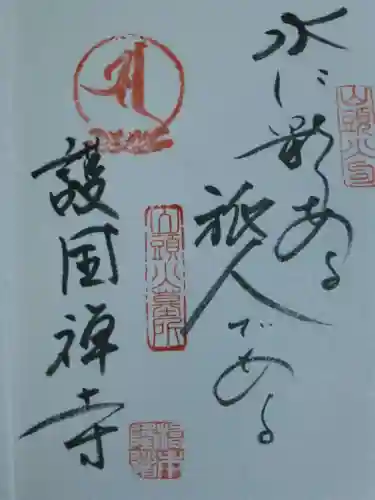 山頭火句
水に影ある
旅人である
山頭火墓所
護国禅寺